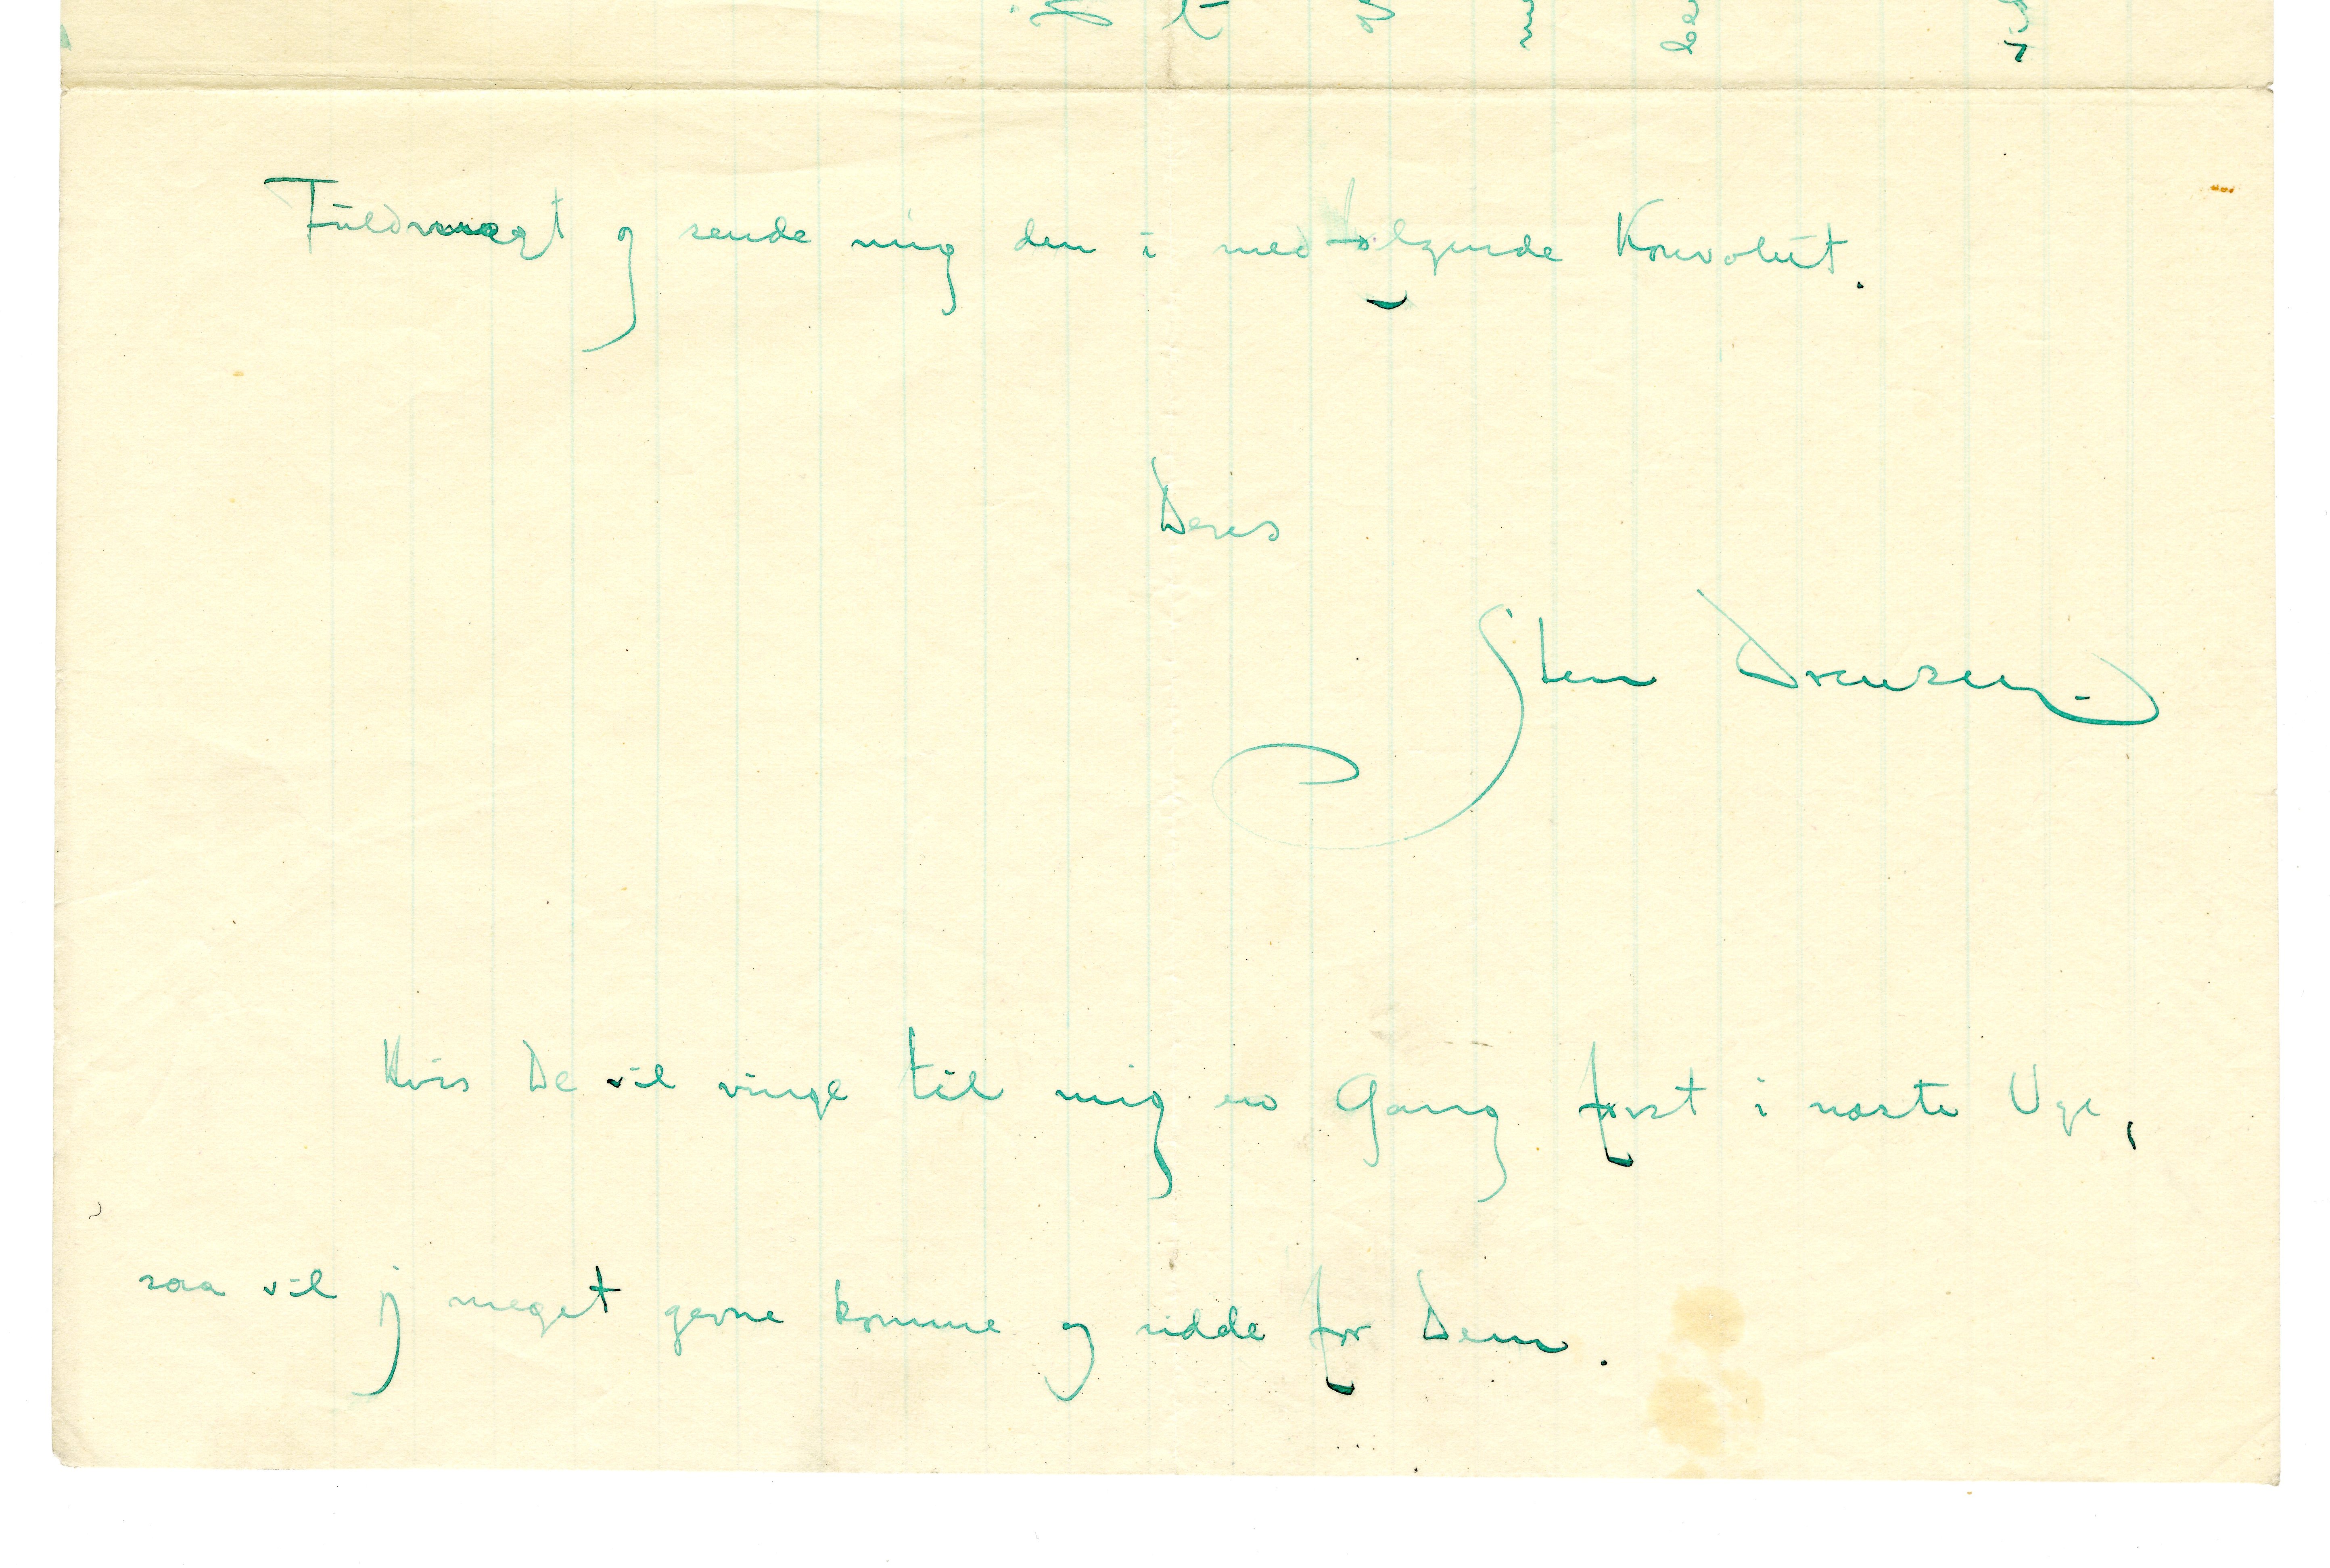 Fuldmagt og sende mig den i medfølgende Konvolut.
Deres
Sten Drewsen
Hvis De vil ringe til mig en Gang først i næste Uge,
saa vil jeg meget gerne komme og sidde for Dem.